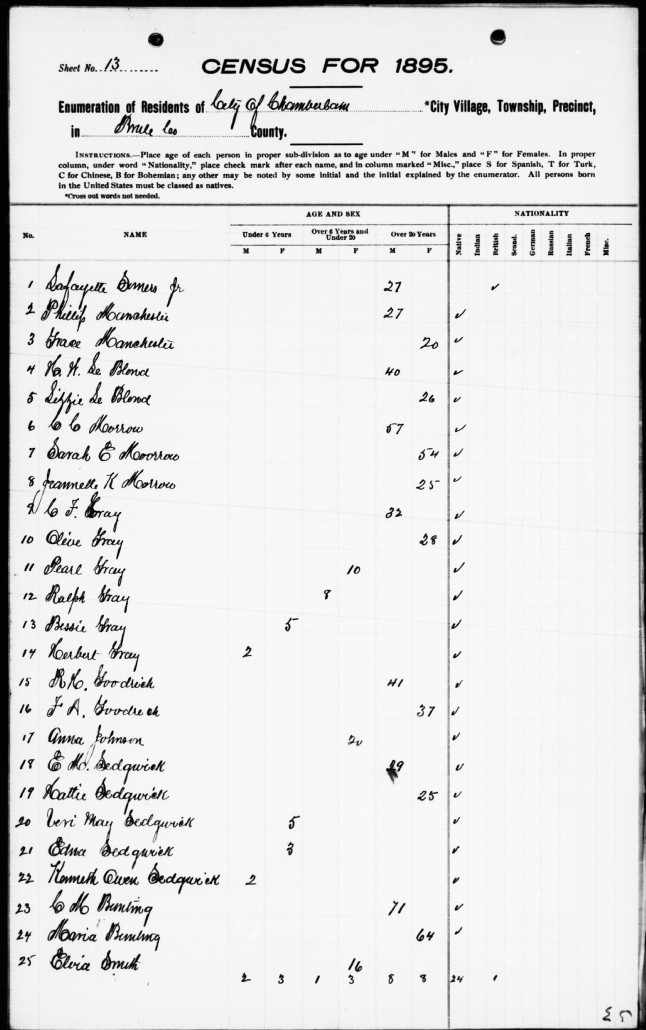 Sheet No. 13
CENSUS FOR 1895.
Enumeration of Residents of City of Chamberlain *City Village, Township, Precinct,
in Brule Co County.
INSTRUCTIONS.—Place age of each person in proper sub-division as to age under "M" for Males and "F" for Females. In proper
column, under word "Nationality," place check mark after each name, and in column marked "Misc.," place S for Spanish, T for Turk,
C for Chinese, B for Bohemian; any other may be noted by some initial and the initial explained by the enumerator. All persons born
in the United States must be classed as natives.
*Cross out words not needed.
AGE AND SEX NATIONALITY
No. NAME Under 6 Years Over 6 Years and Under 20 Over 20 Years Native Indian British Scand. German Russian Italian French Misc.
M F M F M F
1 Lafayette Somers Jr 27 ✓
2 Phillip Manchester 27 ✓
3 Grace Manchester 20 ✓
4 H. H. Le Blond 40 ✓
5 Lizzie Le Blond 26 ✓
6 C C Morrow 57 ✓
7 Sarah E Moorrow 54 ✓
8 Jeannette K Morrow 25 ✓
9 C F. Gray 32 ✓
10 Olive Gray 28 ✓
11 Pearl Gray 10 ✓
12 Ralph Gray 8 ✓
13 Bessie Gray 5 ✓
14 Herbert Gray 2 ✓
15 R H. Goodrich 41 ✓
16 F A. Goodrich 37 ✓
17 Anna Johnson 20 ✓
18 E M. Sedgwick 29 ✓
19 Hattie Sedgwick 25 ✓
20 May Sedgwick 5 ✓
21 Edna Sedgwick 3 ✓
22 Kenneth Owen Sedgwick 2 ✓
23 C M Bunting 71 ✓
24 Maria Bunting 64 ✓
25 Elvia Smith 16
2 3 1 3 8 8 24 1
25